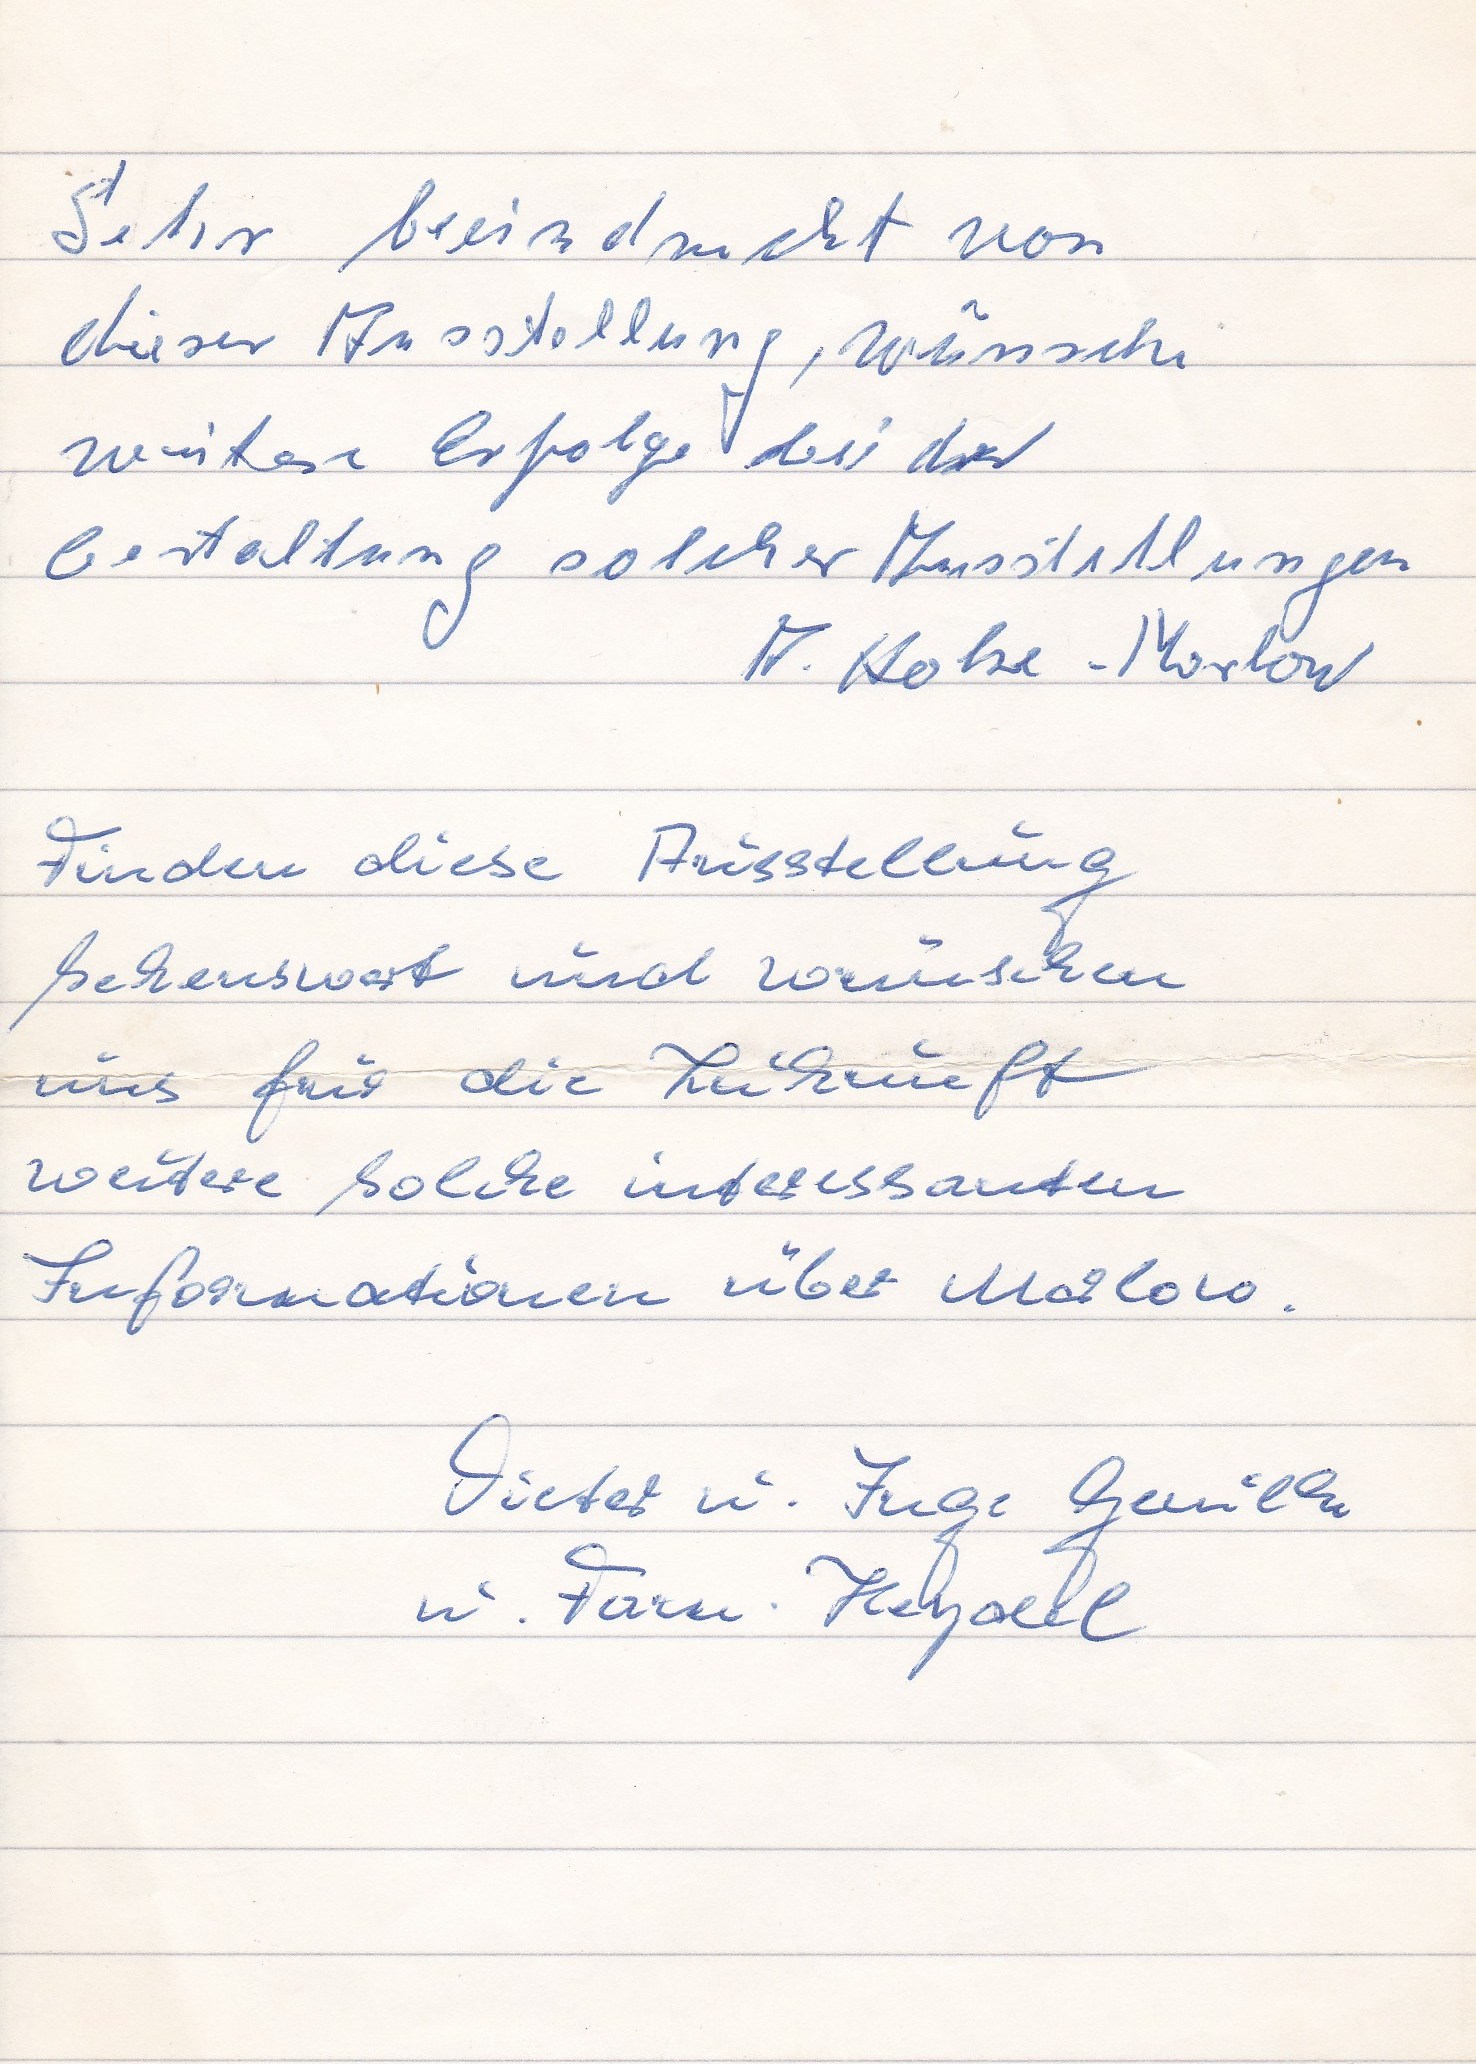 Sehr beeindruckt von
dieser Ausstellung, wünsche
weitere Erfolge bei der
Gestaltung solcher Ausstellungen
Marlow
Finden diese Ausstellung
sehenswert und wünschen
uns für die Zukunft
weitere solche interessanten
Informationen über Marlow.
Dieter u. Inge
u. Fam. Heydel